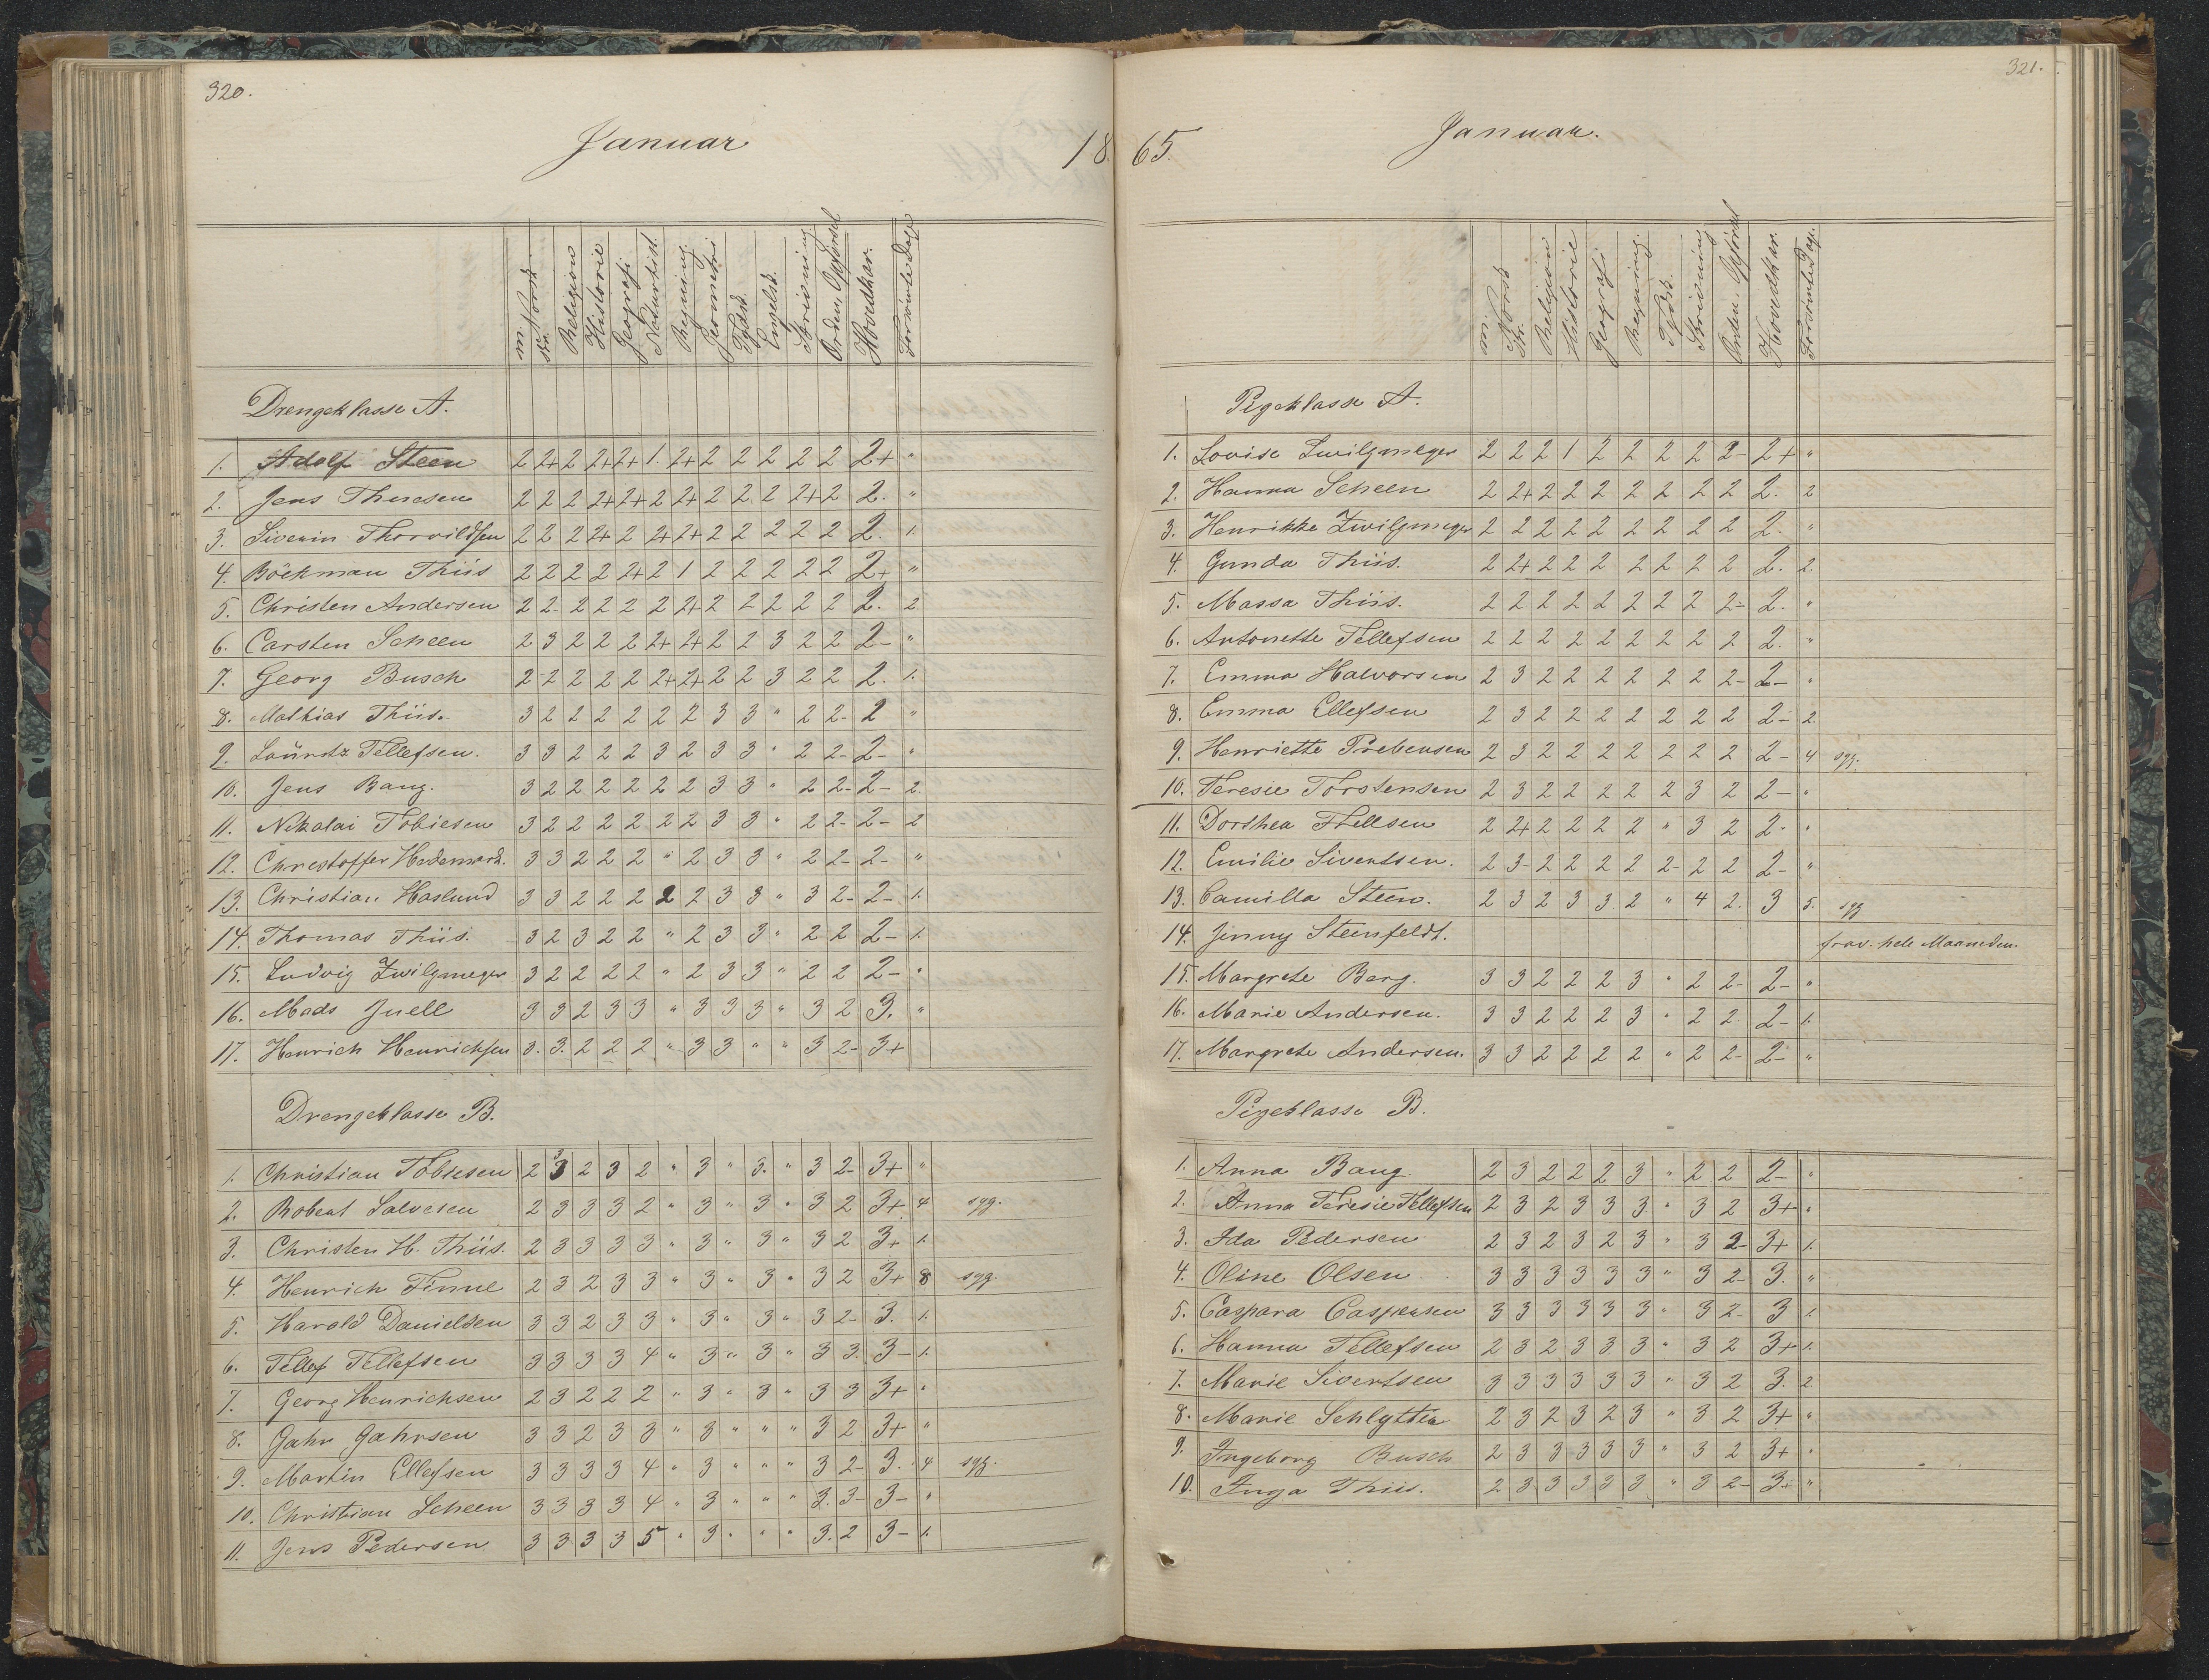 320.
Januar 18
mi. Norsk skr. Religion Historie Geografi Naturhist. Regning. Geometri Tydsk. Engelsk. Skrivning Orden, Opførsel Hovedkar. Forsømte Dage
Drengeklasse A.
1. Adolf Steen 2 2+ 2 2+ 2+ 1. 2+ 2 2 2 2 2 2+ "
2. Jens Thuesen 2 2 2 2+ 2+ 2 2+ 2 2 2 2+ 2 2. "
3. Siverin Thorvildsen 2 2 2 2+ 2 2+ 2+ 2 2 2 2 2 2. 1.
4. Böckman Thiis 2 2 2 2 2+ 2 1 2 2 2 2 2 2+ "
5. Christen Andersen 2 2- 2 2 2 2 2+ 2 2 2 2 2 2. 2
6. Carsten Scheen 2 3 2 2 2 2+ 2+ 2 2 3 2 2 2- "
7. Georg Busch 2 2 2 2 2 2+ 2+ 2 2 3 2 2 2. 1.
8. Mathias Thiis. 3 2 2 2 2 2 2 3 3 " 2 2- 2 "
9. Lauritz Tellefsen. 3 3 2 2 2 3 2 3 3 " 2 2- 2- "
10. Jens Bang. 3 2 2 2 2 2 2 3 3 " 2 2- 2- 2.
11. Nikolai Tobiesen 3 2 2 2 2 2 2 3 3 " 2 2- 2- 2
12. Christoffer Hedemark. 3 3 2 2 2 " 2 3 3 " 2 2- 2- "
13. Christian Haslund 3 3 2 2 2 2 2 3 3 " 3 2- 2- 1.
14. Thomas Thiis. 3 2 3 2 2 " 2 3 3 " 2 2 2- 1.
15. Ludvig Zwilgmeyer 3 2 2 2 2 " 2 3 3 " 2 2 2- "
16. Mads Juell 3 3 2 3 3 " 3 3 3 " 3 2 3. "
17. Henrich Henrichsen 3. 3. 2 2 2 " 3 3 " " 3 2- 3+
Drengeklasse B.
1. Christian Tobiesen 2 3 2 3 2 " 3 " 3. " 3 2- 3+ "
2. Robert Salvesen 2 3 3 3 2 " 3 " 3 " 3 2 3+ 4 syg.
3. Christen H. Thiis. 2 3 3 3 3 " 3 " 3 " 3 2 3+ 1.
4. Henrich Finne 2 3 2 3 3 " 3 " 3 " 3 2 3+ 8. syg.
5. Harald Danielsen 3 3 2 3 3 " 3 " 3 " 3 2- 3. 1.
6. Tellef Tellefsen 3 3 3 3 4 " 3 " 3 " 3 3. 3- 1.
7. Georg Henrichsen 2 3 2 2 2 " 3 " 3 " 3 3 3+ "
8. Gahr Gahrsen 3 3 2 3 3 " 3 " " " 3 2 3+ "
9. Martin Ellefsen 3 3 3 3 4 " 3 " " " 3 2- 3. 4 syg.
10. Christian Scheen 3 3 3 3 4 " 3 " " " 3. 3- 3- "
11. Jens Pedersen 3 3 3 3 5 " 3 " " " 3. 2 3- 1.
321.
65. Januar.
mi. Norsk Skr. Religion Historie Geografi Regning. Tydsk. Skrivning Orden, Opførsel Hovedkar. Forsømte Dage.
Pigeklasse A.
1. Lovise Zwilgmeyer 2 2 2 1 2 2 2 2 2- 2+ "
2. Hanna Scheen 2 2+ 2 2 2 2 2 2 2 2. 2
3. Henrikke Zwilgmeyer 2 2 2 2 2 2 2 2 2 2. "
4. Gunda Thiis. 2 2+ 2 2 2 2 2 2 2 2. 2.
5. Massa Thiis. 2 2 2 2 2 2 2 2 2- 2. "
6. Antonette Tellefsen 2 2 2 2 2 2 2 2 2 2. "
7. Emma Halvorsen 2 3 2 2 2 2 2 2 2- 2- "
8. Emma Ellefsen 2 3 2 2 2 2 2 2 2 2- 2.
9. Henriette Prebensen 2 3 2 2 2 2 2 2 2 2- 4 syg.
10. Teresie Torstensen 2 3 2 2 2 2 2 3 2 2- "
11. Dorthea Thellsen 2 2+ 2 2 2 2 " 3 2 2- "
12. Emilie Sivertsen. 2 3- 2 2 2 2 2- 2 2 2- "
13. Camilla Steen. 2 3 2 3 3 2 " 4 2. 3 5. syg
14. Jenny Steenfeldt. frav. hele Maaneden.
15. Margrete Berg. 3 3 2 2 2 3 " 2 2- 2- "
16. Marie Andersen. 3 3 2 2 2 3 " 2 2. 2- 1.
17. Margrete Andersen. 3 3 2 2 2 2 " 2 2- 2- "
Pigeklasse B.
1. Anna Bang. 2 3 2 2 2 3 " 2 2 2- "
2. Anna Teresie Tellefsen 2 3 2 3 3 3 " 3 2 3+ "
3. Ida Pedersen 2 3 2 3 2 3 " 3 2- 3+ 1.
4. Oline Olsen 3 3 3 3 3 3 " 3 2- 3. "
5. Caspara Caspersen 3 3 3 3 3 3 " 3 2- 3 1.
6. Hanna Tellefsen 2 3 2 3 3 3 " 3 2 3+ 1.
7. Marie Sivertsen 3 3 3 3 3 3 " 3 2 3. 2.
8. Marie Schlytter 2 3 2 3 2 3 " 3 2 3+ "
9. Ingeborg Busch 2 3 3 3 3 3 " 3 2 3+ "
10. Inga Thiis. 2 3 3 3 3 3 " 3 2- 3+ "